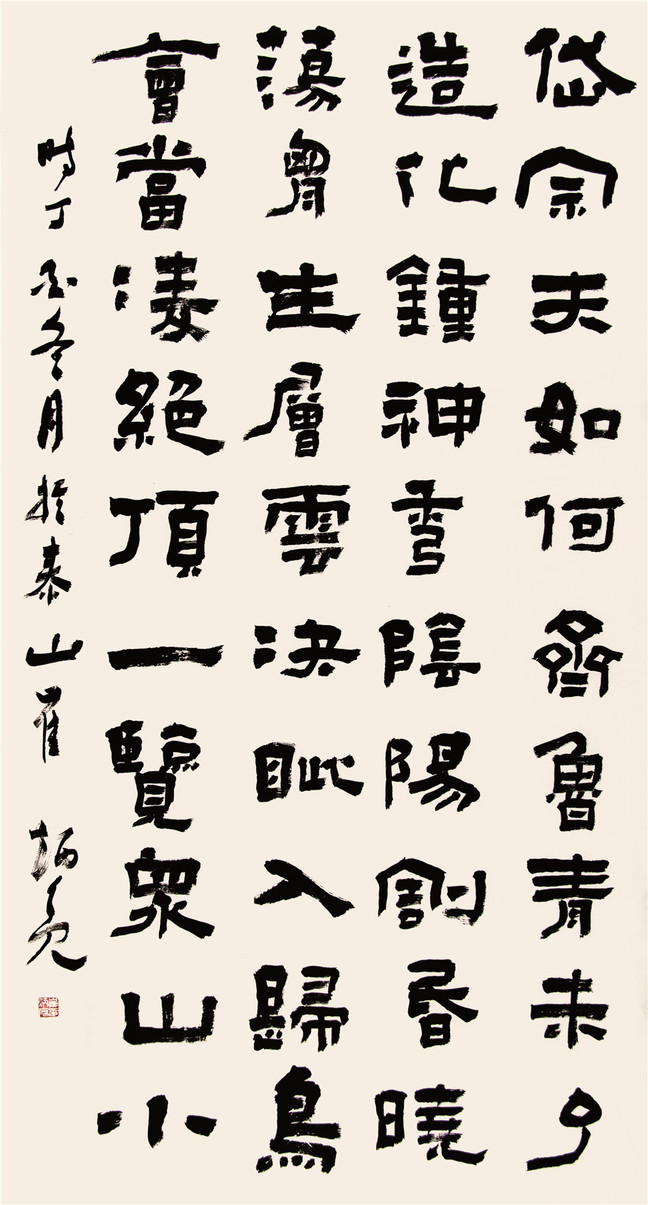 岱宗夫如何齊魯青未了
造化鍾神秀陰陽割昏曉
蕩胷生層雲决眦入歸鳥
會當凌絕頂一覽衆山小
時丁酉冬月於泰山崔